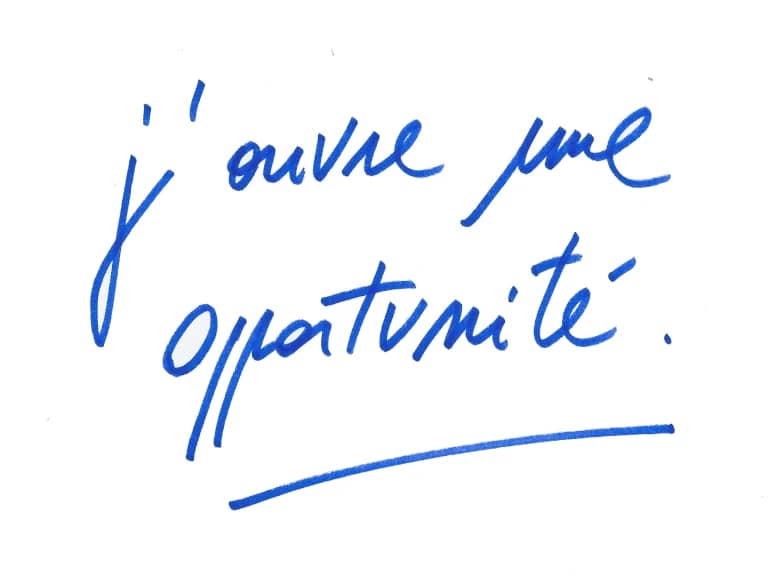 j'ouvre une
opportunité.